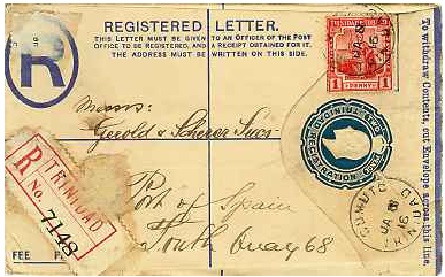 REGISTERED LETTER.
THIS LETTER MUST BE GIVEN TO AN OFFICER OF THE POST
OFFICE TO BE REGISTERED, AND A RECEIPT OBTAINED FOR IT.
THE ADDRESS MUST BE WRITTEN ON THIS SIDE.
R
1 PENNY 1
To withdraw Contents, cut Envelope across this line.
Messrs:
Gerold & Scherer Sucs
R TRINIDAD
No. 7148
Port of Spain
South Quay 68
REGISTRATION
JA 8
16
FEE